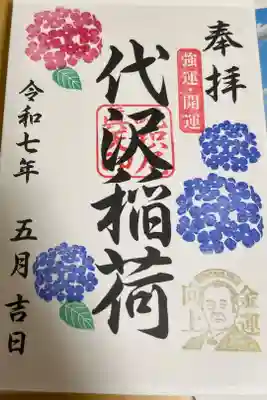 奉拝
強運・開運
代沢稲荷
令和七年 五月吉日
金運
向上